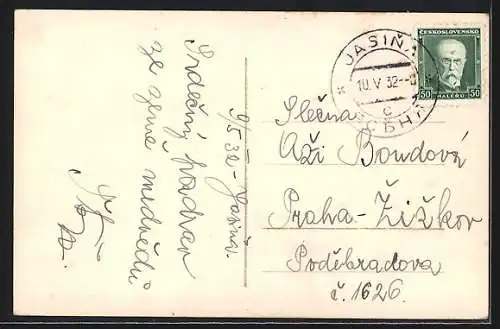 9/5 32 - Jasiňa.
Srdečný pozdrav
ze země medvědů
JASIŇA
10.V 32
C
ЯСѢНЯ
ČESKOSLOVENSKO
50 50
HALÉŘŮ
Slečna
Aži Bondová
Praha - Žižkov
Poděbradova
č. 1626.